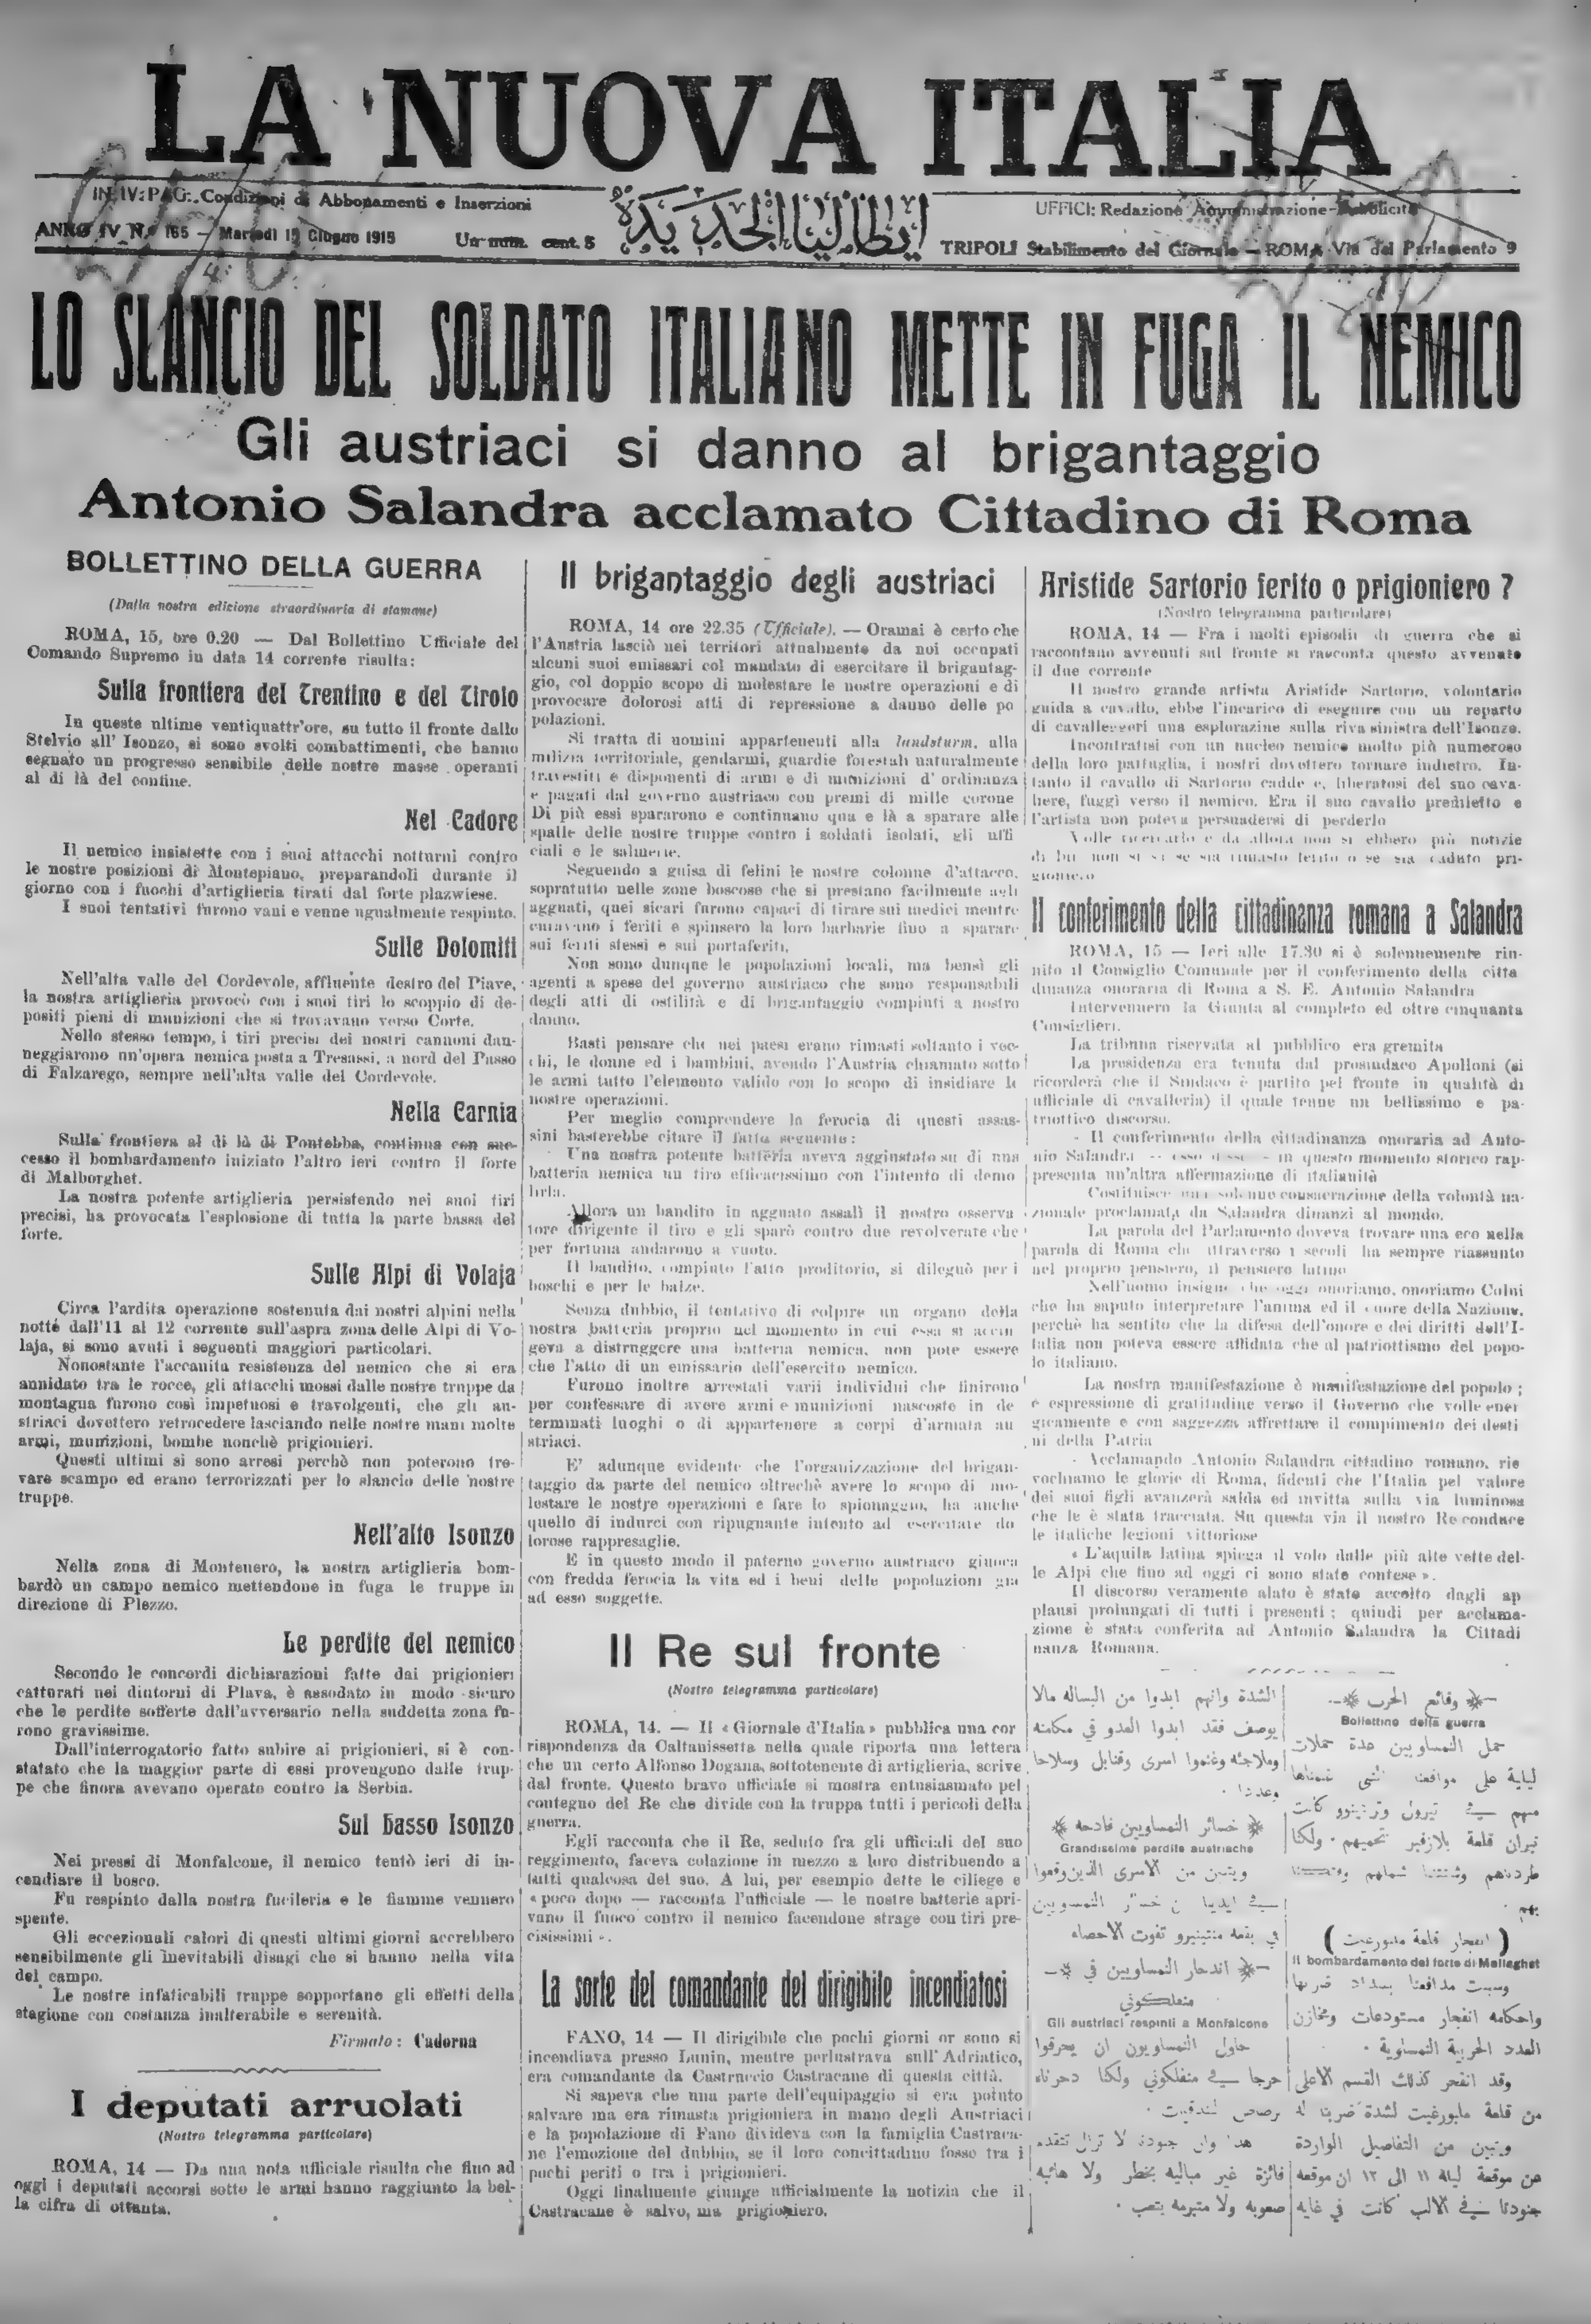 LA NUOVA ITALIA
IN IV: PAG: Condizioni di Abbonamenti e Inserzioni
ANNO IV N. 165 — Martedì 15 Giugno 1915 Un num. cent. 5
ايطاليا الجديدة
UFFICI: Redazione Amministrazione-Pubblicità
TRIPOLI Stabilimento del Giornale — ROMA Via del Parlamento 9
LO SLANCIO DEL SOLDATO ITALIANO METTE IN FUGA IL NEMICO
Gli austriaci si danno al brigantaggio
Antonio Salandra acclamato Cittadino di Roma
BOLLETTINO DELLA GUERRA
(Dalla nostra edizione straordinaria di stamane)
ROMA, 15, ore 0.20 — Dal Bollettino Ufficiale del
Comando Supremo in data 14 corrente risulta:
Sulla frontiera del Trentino e del Tirolo
In queste ultime ventiquattr'ore, su tutto il fronte dallo
Stelvio all' Isonzo, si sono svolti combattimenti, che hanno
segnato un progresso sensibile delle nostre masse operanti
al di là del confine.
Nel Cadore
Il nemico insistette con i suoi attacchi notturni contro
le nostre posizioni di Montepiano, preparandoli durante il
giorno con i fuochi d'artiglieria tirati dal forte plazwiese.
I suoi tentativi furono vani e venne ugualmente respinto.
Sulle Dolomiti
Nell'alta valle del Cordevole, affluente destro del Piave,
la nostra artiglieria provocò con i suoi tiri lo scoppio di de-
positi pieni di munizioni che si trovavano verso Corte.
Nello stesso tempo, i tiri precisi dei nostri cannoni dan-
neggiarono un'opera nemica posta a Tresassi, a nord del Passo
di Falzarego, sempre nell'alta valle del Cordevole.
Nella Carnia
Sulla frontiera al di là di Pontebba, continua con suc-
cesso il bombardamento iniziato l'altro ieri contro il forte
di Malborghet.
La nostra potente artiglieria persistendo nei suoi tiri
precisi, ha provocata l'esplosione di tutta la parte bassa del
forte.
Sulle Alpi di Volaja
Circa l'ardita operazione sostenuta dai nostri alpini nella
notte dall'11 al 12 corrente sull'aspra zona delle Alpi di Vo-
laja, si sono avuti i seguenti maggiori particolari.
Nonostante l'accanita resistenza del nemico che si era
annidato tra le rocce, gli attacchi mossi dalle nostre truppe da
montagna furono così impetuosi e travolgenti, che gli au-
striaci dovettero retrocedere lasciando nelle nostre mani molte
armi, munizioni, bombe nonchè prigionieri.
Questi ultimi si sono arresi perchè non poterono tro-
vare scampo ed erano terrorizzati per lo slancio delle nostre
truppe.
Nell'alto Isonzo
Nella zona di Montenero, la nostra artiglieria bom-
bardò un campo nemico mettendone in fuga le truppe in
direzione di Plezzo.
Le perdite del nemico
Secondo le concordi dichiarazioni fatte dai prigionieri
catturati nei dintorni di Plava, è assodato in modo sicuro
che le perdite sofferte dall'avversario nella suddetta zona fu-
rono gravissime.
Dall'interrogatorio fatto subire ai prigionieri, si è con-
statato che la maggior parte di essi provengono dalle trup-
pe che finora avevano operato contro la Serbia.
Sul basso Isonzo
Nei pressi di Monfalcone, il nemico tentò ieri di in-
cendiare il bosco.
Fu respinto dalla nostra fucileria e le fiamme vennero
spente.
Gli eccezionali calori di questi ultimi giorni accrebbero
sensibilmente gli inevitabili disagi che si hanno nella vita
del campo.
Le nostre infaticabili truppe sopportano gli effetti della
stagione con costanza inalterabile e serenità.
Firmato: Cadorna
I deputati arruolati
(Nostro telegramma particolare)
ROMA, 14 — Da una nota ufficiale risulta che fino ad
oggi i deputati accorsi sotto le armi hanno raggiunto la bel-
la cifra di ottanta.
Il brigantaggio degli austriaci
ROMA, 14 ore 22.35 (Ufficiale). — Oramai è certo che
l'Austria lasciò nei territori attualmente da noi occupati
alcuni suoi emissari col mandato di esercitare il brigantag-
gio, col doppio scopo di molestare le nostre operazioni e di
provocare dolorosi atti di repressione a danno delle po
polazioni.
Si tratta di uomini appartenenti alla landsturm, alla
milizia territoriale, gendarmi, guardie forestali naturalmente
travestiti e disponenti di armi e di munizioni d' ordinanza
e pagati dal governo austriaco con premi di mille corone
Di più essi spararono e continuano qua e là a sparare alle
spalle delle nostre truppe contro i soldati isolati, gli uffi
ciali e le salmerie.
Seguendo a guisa di felini le nostre colonne d'attacco,
sopratutto nelle zone boscose che si prestano facilmente agli
agguati, quei sicari furono capaci di tirare sui medici mentre
curavano i feriti e spinsero la loro barbarie fino a sparare
sui feriti stessi e sui portaferiti.
Non sono dunque le popolazioni locali, ma bensì gli
agenti a spese del governo austriaco che sono responsabili
degli atti di ostilità e di brigantaggio compiuti a nostro
danno.
Basti pensare che nei paesi erano rimasti soltanto i vec-
chi, le donne ed i bambini, avendo l'Austria chiamato sotto
le armi tutto l'elemento valido con lo scopo di insidiare le
nostre operazioni.
Per meglio comprendere la ferocia di questi assas-
sini basterebbe citare il fatto seguente:
Una nostra potente batteria aveva aggiustato su di una
batteria nemica un tiro efficacissimo con l'intento di demo
lirla.
Allora un bandito in agguato assalì il nostro osserva
tore dirigente il tiro e gli sparò contro due revolverate che
per fortuna andarono a vuoto.
Il bandito, compiuto l'atto proditorio, si dileguò per i
boschi e per le balze.
Senza dubbio, il tentativo di colpire un organo della
nostra batteria proprio nel momento in cui essa si accin
geva a distruggere una batteria nemica, non pote essere
che l'atto di un emissario dell'esercito nemico.
Furono inoltre arrestati varii individui che finirono
per confessare di avere armi e munizioni nascoste in de
terminati luoghi o di appartenere a corpi d'armata au
striaci.
E' adunque evidente che l'organizzazione del brigan-
taggio da parte del nemico oltrechè avere lo scopo di mo-
lestare le nostre operazioni e fare lo spionaggio, ha anche
quello di indurci con ripugnante intento ad esercitare do
lorose rappresaglie.
E in questo modo il paterno governo austriaco giuoca
con fredda ferocia la vita ed i beni delle popolazioni gia
ad esso soggette.
Il Re sul fronte
(Nostro telegramma particolare)
ROMA, 14. — Il «Giornale d'Italia» pubblica una cor
rispondenza da Caltanissetta nella quale riporta una lettera
che un certo Alfonso Dogana, sottotenente di artiglieria, scrive
dal fronte. Questo bravo ufficiale si mostra entusiasmato pel
contegno del Re che divide con la truppa tutti i pericoli della
guerra.
Egli racconta che il Re, seduto fra gli ufficiali del suo
reggimento, faceva colazione in mezzo a loro distribuendo a
tutti qualcosa del suo. A lui, per esempio dette le ciliege e
«poco dopo — racconta l'ufficiale — le nostre batterie apri-
vano il fuoco contro il nemico facendone strage con tiri pre-
cisissimi».
La sorte del comandante del dirigibile incendiatosi
FANO, 14 — Il dirigibile che pochi giorni or sono si
incendiava presso Lunin, mentre perlustrava sull' Adriatico,
era comandante da Castruccio Castracane di questa città.
Si sapeva che una parte dell'equipaggio si era potuto
salvare ma era rimasta prigioniera in mano degli Austriaci
e la popolazione di Fano divideva con la famiglia Castraca-
ne l'emozione del dubbio, se il loro concittadino fosse tra i
pochi periti o tra i prigionieri.
Oggi finalmente giunge ufficialmente la notizia che il
Castracane è salvo, ma prigioniero.
Aristide Sartorio ferito o prigioniero ?
(Nostro telegramma particolare)
ROMA, 14 — Fra i molti episodii di guerra che si
raccontano avvenuti sul fronte si racconta questo avvenuto
il due corrente
Il nostro grande artista Aristide Sartorio, volontario
guida a cavallo, ebbe l'incarico di eseguire con un reparto
di cavalleggeri una esplorazine sulla riva sinistra dell'Isonzo.
Incontratisi con un nucleo nemico molto più numeroso
della loro pattuglia, i nostri dovettero tornare indietro. In-
tanto il cavallo di Sartorio cadde e, liberatosi del suo cava-
liere, fuggì verso il nemico. Era il suo cavallo prediletto e
l'artista non poteva persuadersi di perderlo
Volle ricercarlo e da allora non si ebbero più notizie
di lui non si sa se sia rimasto ferito o se sia caduto pri-
gioniero
Il conferimento della cittadinanza romana a Salandra
ROMA, 15 — Ieri alle 17.30 si è solennemente riu-
nito il Consiglio Comunale per il conferimento della citta
dinanza onoraria di Roma a S. E. Antonio Salandra
Intervenuero la Giunta al completo ed oltre cinquanta
Consiglieri.
La tribuna riservata al pubblico era gremita
La presidenza era tenuta dal prosindaco Apolloni (si
ricorderà che il Sindaco è partito pel fronte in qualità di
ufficiale di cavalleria) il quale tenne un bellissimo e pa-
triottico discorso.
- Il conferimento della cittadinanza onoraria ad Anto-
nio Salandra — esso disse — in questo momento storico rap-
presenta un'altra affermazione di italianità
Costituisce una solenne consacrazione della volontà na-
zionale proclamata da Salandra dinanzi al mondo.
La parola del Parlamento doveva trovare una eco nella
parola di Roma che attraverso i secoli ha sempre riassunto
nel proprio pensiero, il pensiero latino
Nell'uomo insigne che oggi onoriamo, onoriamo Colui
che ha saputo interpretare l'anima ed il cuore della Nazione,
perchè ha sentito che la difesa dell'onore e dei diritti dell'I-
talia non poteva essere affidata che al patriottismo del popo-
lo italiano.
La nostra manifestazione è manifestazione del popolo;
è espressione di gratitudine verso il Governo che volle ener
gicamente e con saggezza affrettare il compimento dei desti
ni della Patria
Acclamando Antonio Salandra cittadino romano, rie
vochiamo le glorie di Roma, fidenti che l'Italia pel valore
dei suoi figli avanzerà salda ed invitta sulla via luminosa
che le è stata tracciata. Su questa via il nostro Re conduce
le italiche legioni vittoriose
« L'aquila latina spiega il volo dalle più alte vette del-
le Alpi che fino ad oggi ci sono state contese ».
Il discorso veramente alato è stato accolto dagli ap
plausi prolungati di tutti i presenti; quiudi per acclama-
zione è stata conferita ad Antonio Salandra la Cittadi
nanza Romana.
وقائع الحرب
Bollettino della guerra
حمل النمساويين عدة حملات
ليلية على مواقعنا التى
منهم في تيرول وترنتينو كانت
نيران قلعة بلازفير تحميهم ٠ ولكنا
طردناهم وشتتنا شملهم
بهم
( انفجار قلعة ملبورغيت )
Il bombardamento del forte di Malleghet
وسببت مدافعنا بسداد ضربها
واحكامه انفجار مستودعات ومخازن
العدد الحربية النمساوية ٠
وقد انفجر كذلك القسم الاعلى
من قلعة مابورغيت لشدة ضربنا له
ويتبين من التفاصيل الواردة
عن موقعة ليلة ١١ الى ١٢ ان موقعه
جنودنا في الالب كانت في غايه
الشدة وانهم ابدوا من البساله مالا
يوصف فقد ابدوا العدو في مكامنه
وملاجئه وغنموا اسرى وقنابل وسلاحا
وعددا ٠
خسائر النمساويين فادحه
Grandissime perdite austriache
ويتبين من الاسرى الذين وقعوا
في ايدينا ان خسائر النمسويين
في بقعه منتينيرو تفوت الاحصاء
اندحار النمساويين في
منفلكوني
Gli austriaci respinti a Monfalcone
حاول النمساويون ان يحرقوا
حرجا في منفلكوني ولكنا دحرناه
برصاص البندقيت ٠
هذا وان جنودنا لا تزال تتقدم
فائزة غير مباليه بخطر ولا هائبه
صعوبه ولا متبرمه بتعب ٠